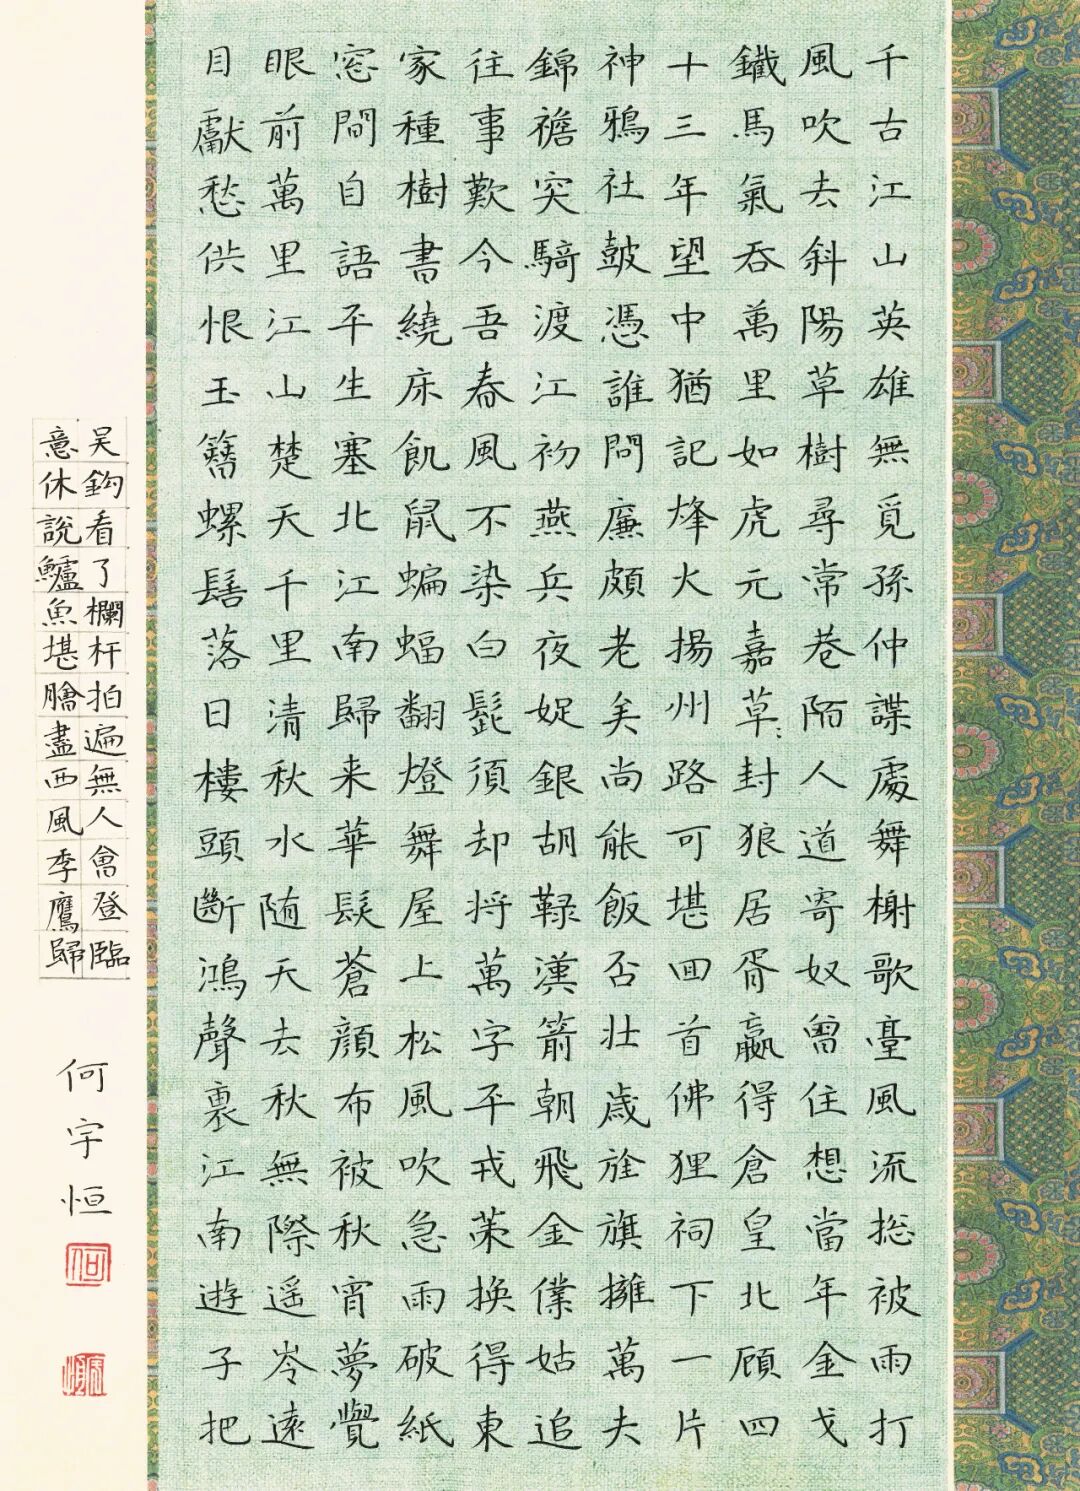 千古江山英雄無覓孫仲謀處舞榭歌臺風流総被雨打
風吹去斜陽草樹尋常巷陌人道寄奴曾住想當年金戈
鐵馬氣吞萬里如虎元嘉草〻封狼居胥贏得倉皇北顧四
十三年望中猶記烽火揚州路可堪回首佛狸祠下一片
神鴉社鼓憑誰問廉頗老矣尚能飯否壯歲旌旗擁萬夫
錦襜突騎渡江初燕兵夜娖銀胡䩮漢箭朝飛金僕姑追
往事歎今吾春風不染白髭須却将萬字平戎策換得東
家種樹書繞床飢鼠蝙蝠翻燈舞屋上松風吹急雨破紙
窓間自語平生塞北江南歸来華髮蒼顔布被秋宵夢覺
眼前萬里江山楚天千里清秋水随天去秋無際遥岑遠
目獻愁供恨玉簪螺髻落日樓頭斷鴻聲裏江南遊子把
吴鈎看了欄杆拍遍無人會登臨
意休説鱸魚堪膾盡西風季鷹歸
何宇恒
何